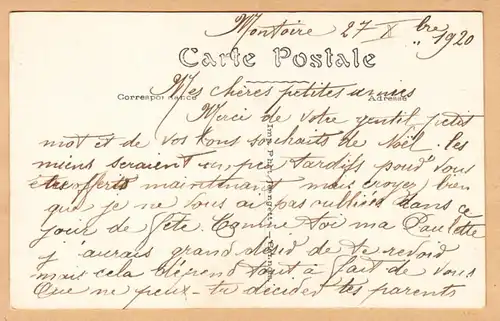 Montoire 27 Xbre 1920
Carte Postale
Correspondance Adresse
Mes chères petites amies
Merci de votre gentil petit
mot et de vos bons souhaits de Noël. Les
miens seraient un peu tardifs pour vous
être offerts maintenant mais croyez bien
que je ne vous ai pas oubliées dans ce
jour de fête. Comme toi ma Paulette
j'aurais grand désir de te revoir
mais cela dépend tout à fait de vous
Que ne peux-tu décider tes parents